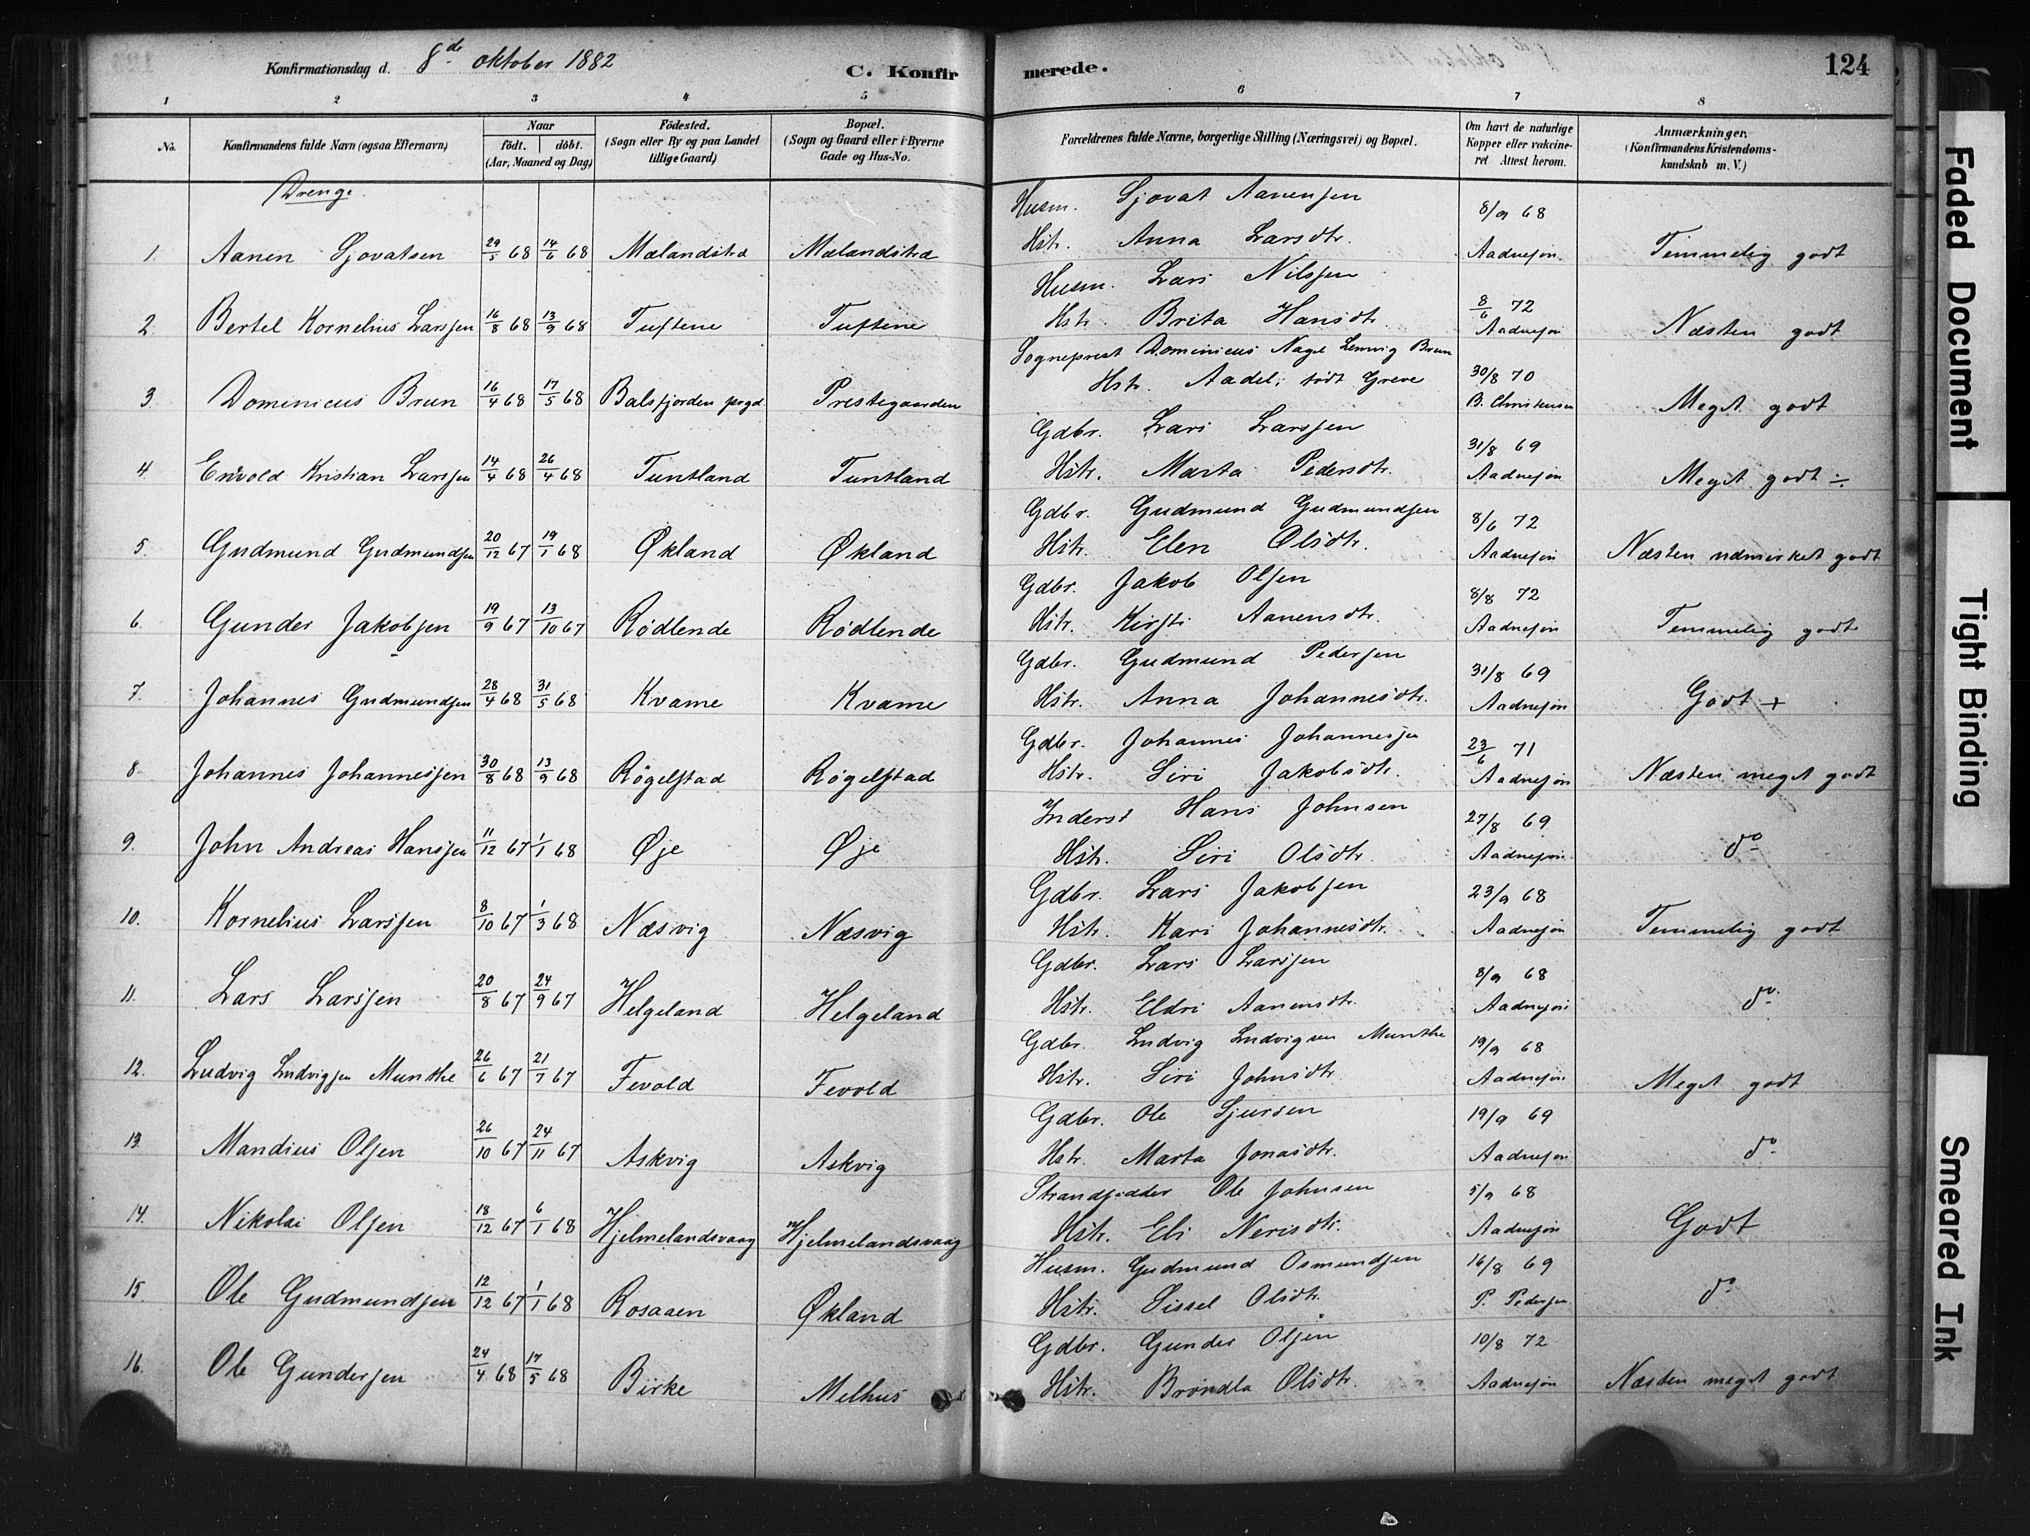 Konfirmationsdag d. 8de oktober 1882
C. Konfirmerede.
124
1 2 3 4 5 6 7 8
No.
Konfirmandens fulde Navn (ogsaa Efternavn)
Naar
født. døbt.
(Aar, Maaned og Dag)
Fødested.
(Sogn eller By og paa Landet
tillige Gaard)
Bopæl.
(Sogn og Gaard eller i Byerne
Gade og Hus-No.
Forældrenes fulde Navne, borgerlige Stilling (Næringsvei) og Bopæl.
Om havt de naturlige
Kopper eller vakcine-
ret Attest herom.
Anmærkninger.
(Konfirmandens Kristendoms-
kundskab m. V.)
Drenge.
Husm. Sjovat Aanensen 8/9 68
1. Aanen Sjovatsen 29/5 68 14/6 68 Mælandstrd Mælandstrd Hstr. Anna Larsdtr. Aadnesøn Temmelig godt
Husm. Lars Nilssen
2. Bertel Kornelius Larssen 16/8 68 13/9 68 Tuftene Tuftene Hstr. Brita Hansdtr. 8/6 72 Aadnesøn Næsten godt
Sogneprest Dominicus Nagel Lemvig Brun
3. Dominicus Brun 16/4 68 17/5 68 Balsfjorden prgd. Prestegaarden Hstr. Aadel, født Greve 30/8 70 B. Christensen Meget godt
Gdbr. Lars Larssen 31/8 69
4. Enevold Kristian Larssen 14/4 68 26/4 68 Tuntland Tuntland Hstr. Marta Pedersdtr. Aadnesøn Meget godt ÷
Gdbr. Gudmund Gudmundsen 8/6 72
5. Gudmund Gudmundsen 20/12 67 19/1 68 Økland Økland Hstr. Elen Olsdtr. Aadnesøn Næsten udmerket godt
Gdbr. Jakob Olsen 8/8 72
6. Gunder Jakobsen 19/9 67 13/10 67 Rødlende Rødlende Hstr. Kirsti Aanensdtr. Aadnesøn Temmelig godt
Gdbr. Gudmund Pedersen 31/8 69
7. Johannes Gudmundsen 28/4 68 31/5 68 Kvame Kvame Hstr. Anna Johannesdtr. Aadnesøn Godt +
Gdbr. Johannes Johannessen 23/6 71
8. Johannes Johannessen 30/8 68 13/9 68 Røgelstad Røgelstad Hstr. Siri Jakobsdtr. Aadnesøn Næsten meget godt
Inderst Hans Johnsen 27/8 69
9. John Andreas Hanssen 11/12 67 1/1 68 Øje Øje Hstr. Siri Olsdtr. Aadnesøn do
Gdbr. Lars Jakobsen 23/9 68
10. Kornelius Larssen 8/10 67 1/3 68 Næsvig Næsvig Hstr. Kari Johannesdtr. Aadnesøn Temmelig godt
Gdbr. Lars Larssen 8/9 68
11. Lars Larssen 20/8 67 24/9 67 Helgeland Helgeland Hstr. Eldri Aanensdtr. Aadnesøn do
Gdbr. Ludvig Ludvigsen Munthe 19/9 68
12. Ludvig Ludvigsen Munthe 26/6 67 21/7 67 Fevold Fevold Hstr. Siri Johnsdtr. Aadnesøn Meget godt
Gdbr. Ole Sjursen 19/9 69
13. Mandius Olsen 26/10 67 24/11 67 Askvig Askvig Hstr. Marta Jonasdtr. Aadnesøn do
Strandsidder Ole Johnsen 5/9 68
14. Nikolai Olsen 18/12 67 6/1 68 Hjelmelandsvaag Hjelmelandsvaag Hstr. Eli Nerisdtr. Aadnesøn Godt
Husm. Gudmund Osmundsen 16/8 69
15. Ole Gudmundsen 12/12 67 1/1 68 Rosaaen Økland Hstr. Sissel Olsdtr. P. Pedersen do
Gdbr. Gunder Olsen 10/8 72
16. Ole Gundersen 24/4 68 17/5 68 Birke Melhus Hstr. Brøndla Olsdtr. Aadnesøn Næsten meget godt
Faded Document
Tight Binding
Smeared Ink